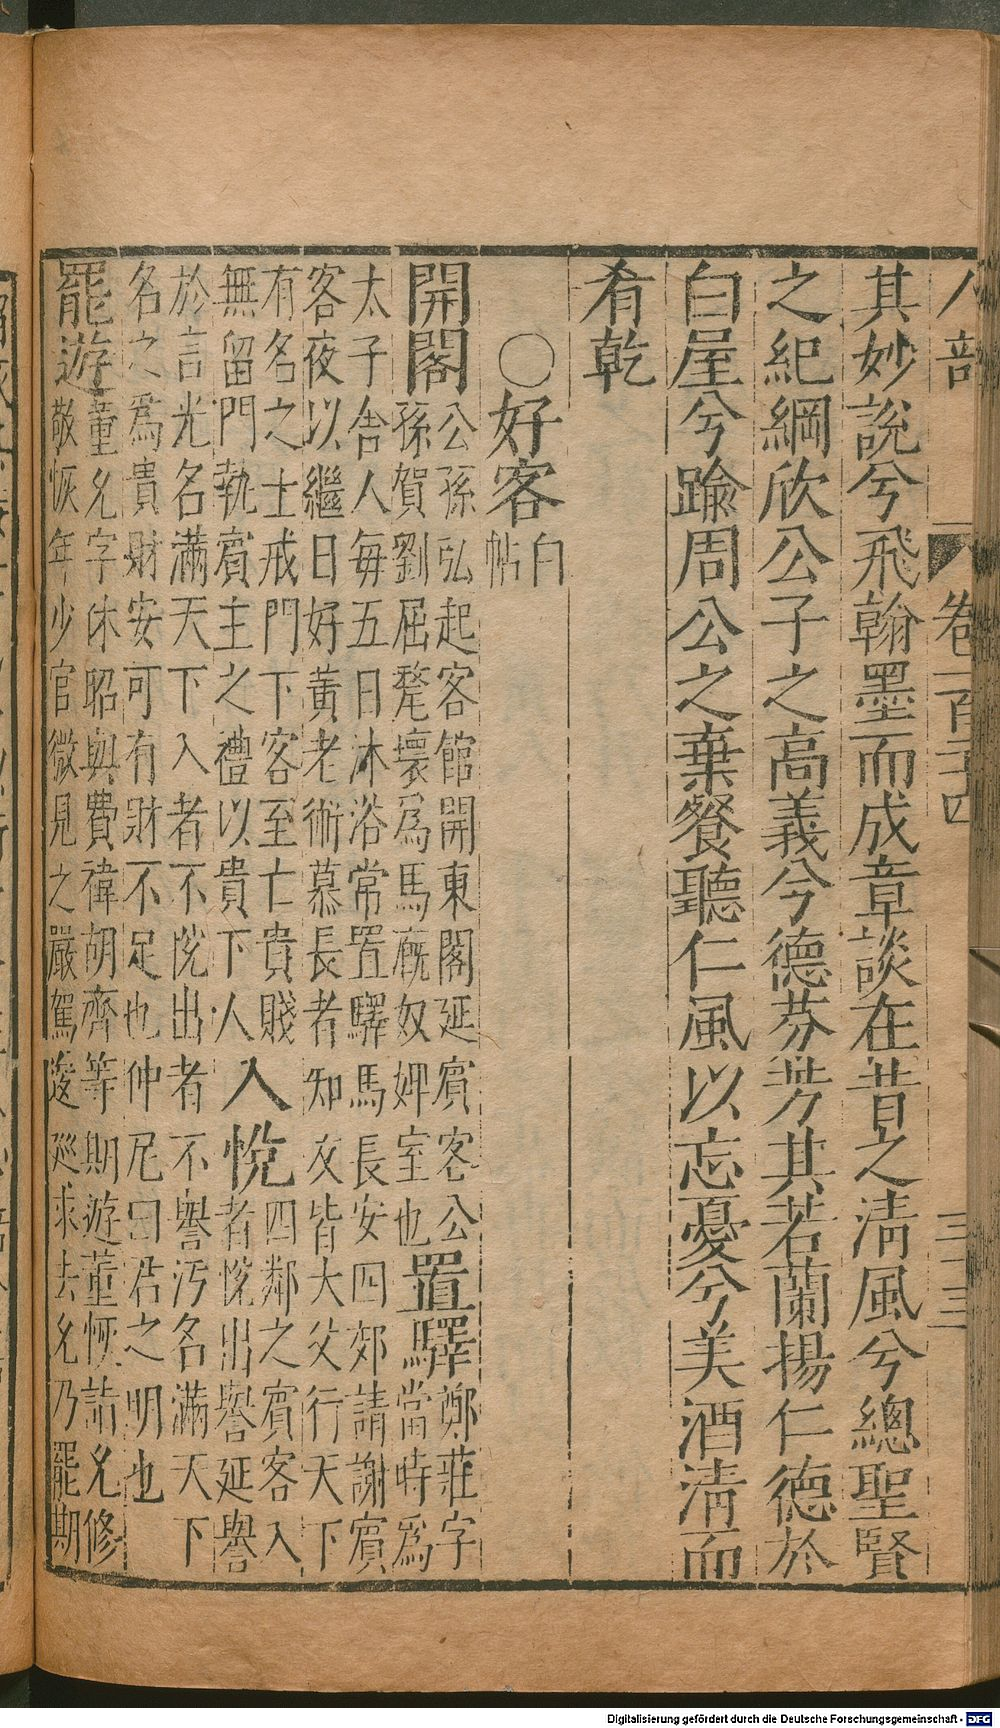 人部 卷一百
其妙說兮飛翰墨而成章談在昔之清風兮總聖賢
之紀綱欣公子之高義兮德芬芳其若蘭揚仁德於
白屋兮踰周公之棄餐聽仁風以忘憂兮美酒清而
肴乾
〇好客白帖
開閣公孫弘起客館開東閣延賓客公
孫賀劉屈氂壞爲馬廐奴婢室也置驛鄭莊字
當時爲
太子舍人每五日沐浴常置驛馬長安四郊請謝賓
客夜以繼日好黃老術慕長者知友皆大父行天下
有名之士戒門下客至亡貴賤
無留門執賓主之禮以貴下人入悅四鄰之賓客入
者悅出譽延譽
於言光名滿天下入者不悅出者不譽污名滿天下
名之爲貴財安可有財不足也仲尼曰君之明也
罷遊董允字休昭與費禕胡齊等期遊董恢詣允修
敬恢年少官微見之嚴駕逡巡求去允乃罷期
Digitalisierung gefördert durch die Deutsche Forschungsgemeinschaft - DFG